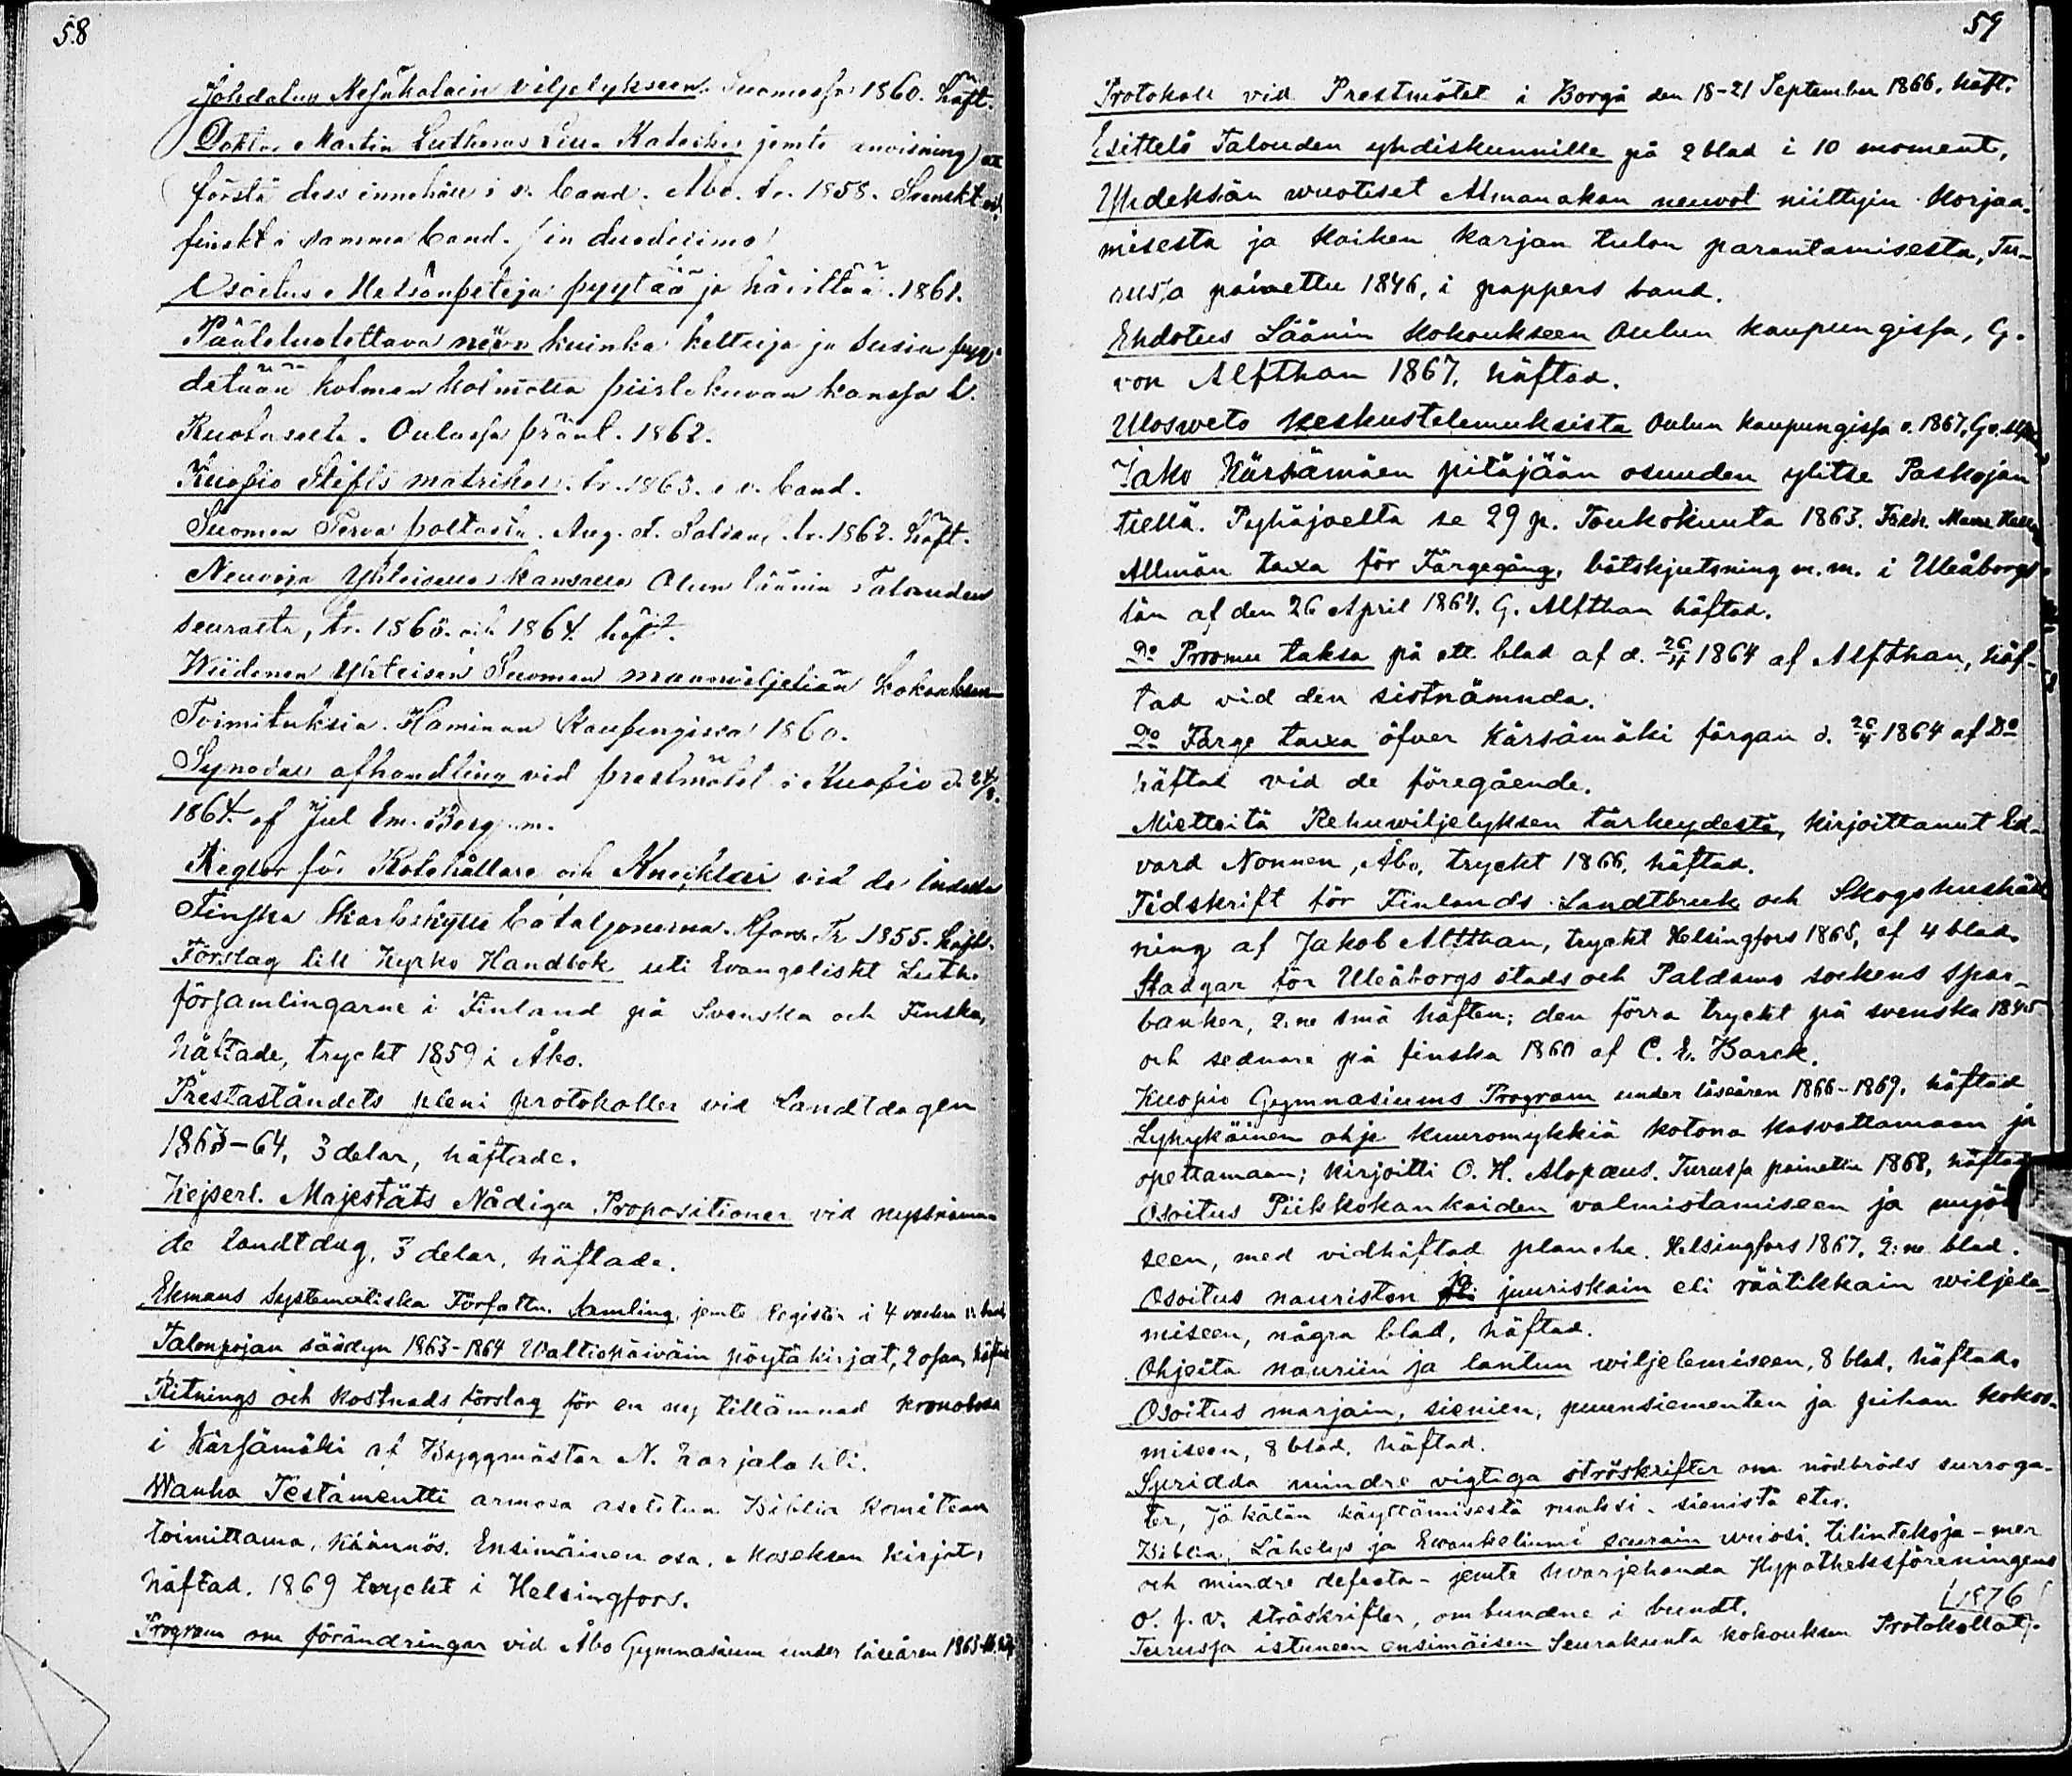 58
Johdatus Kesäkalain viljelykseen Suomessa 1860. häft.
Doktor Martin Lutherus Lilla Kateches jemte anvisning att
förstå dess innehåll i v. band. Åbo. tr. 1858. Svenskt och
finskt i samma band. in duodecimo
Osoitus Metsänpetoja pyytää ja hävittää. 1861.
kuinka kettuja ja susia pyy-
detään kolmen kolmatta piirtokuvan kanssa
Ruotsista. Oulussa pränt. 1862.
Kuopio Stifts matrikel. tr. 1863. e v. band.
Suomen Terva poltosta. Aug. F. Soldan. tr. 1862. häft.
Neuvoja Yhteiselle kansalle Olun läänin Talouden
seuralta, tr. 1863. och 1864. häft.
Wiidennen Yhteisen Suomen maanviljeliän Kokouksen
Toimituksia. Haminan Kaupungissa 1860.
Synodal afhandling vid prestmötet i Kuopio d. 24/8.
1864. af Jul Em. Berg m.
Regler för Kotehållare och Knecktar vid de Indelta
Finska Skarpskytte bataljonerna. Hfors. Tr 1855. häft.
Förslag till Kyrko Handbok uti Evangeliskt Luth.
församlingarne i Finland på Svenska och Finska,
häftade, tryckt 1859 i Åbo.
Prestaståndets pleni protokoller vid Landtdagen
1863-64, 3 delar, häftade.
Kejserl. Majestäts Nådiga Propositioner vid nyssnämn
de landtdag, 3 delar, häftade.
Ekmans Systematiska Författn. Samling, jemte Register i 4 v. band
Talonpojan säädyn 1863-1864 Waltiopäiväin pöytäkirjat, 2 osan, häftad
Ritnings och kostnads förslag för en ny tillämnad
i Kärsämäki af Byggmästar N. Karjalahti.
Wanha Testamentti armosa asetetun Biblia Komitean
toimittama, käännös. Ensimäinen osa. Moseksen kirjat,
häftad. 1869 tryckt i Helsingfors.
Program om förändringar vid Åbo Gymnasium under läseåren 1863
59
Protokoll vid Prestmötet i Borgå den 18-21 September 1866. häft.
Esittelö Talouden yhdiskunnille på 2 blad i 10 moment.
Yhdeksän wuotiset Almanakan neuvot niittyin korjaa-
misesta ja kaiken karjan tulon parantamisesta, Tu-
russa painettu 1846, i pappers band.
Ehdotus Läänin kokoukseen Oulun kaupungissa, G.
von Alfthan 1867, häftad.
Ulosweto keskustelemuksista Oulun kaupungissa v. 1867, G v. Alfthan
Jako Kärsämäen pitäjään osuuden ylitse Paskojan
tiellä. Pyhäjoelta se 29 p. Toukokuuta 1863.
Allmän taxa för Färgegång, båtskjutsning m.m. i Uleåborgs
län af den 26 April 1864. G. Alfthan häftad.
Do Proomu taksa på ett blad af d. 26/4 1864 af Alfthan, häf-
tad vid den sistnämnda.
Do Färge taxa öfver Kärsämäki färgan d. 26/4 1864 af Do
häftad vid de föregående.
Mietteitä Rehuwiljelyksen tärkeydestä, kirjoittanut Ed-
vard Nonnen, Åbo, tryckt 1866, häftad.
Tidskrift för Finlands Landtbruk och Skogshushåll
ning af Jakob Alfthan, tryckt Helsingfors 1865, af 4 blad.
Stadgar för Uleåborgs stads och Paldamo sockens Spar-
banker, 2:ne små häften; den förra tryckt på svenska 1845
och sednare på finska 1860 af C. E. Barck.
Kuopio Gymnasiums Program under läseåren 1866-1869. häftad
Lyhykäinen ohje kuuromykkiä kotona kasvattamaan ja
opettamaan; kirjoitti C. H. Alopæus. Turussa painettu 1868, häftad
Osoitus Piikkokankaiden valmistamiseen ja
seen, med vidhäftad planche. Helsingfors 1867. 2:ne blad.
Osoitus nauriston ja juuriskain eli räätikkain wiljele-
miseen, några blad, häftad.
Ohjeita nauriin ja lantun wiljelemiseen, 8 blad, häftad.
Osoitus marjain, sienien, puunsiementen ja pihan kokoo-
miseen, 8 blad, häftad.
Spridda mindre vigtiga ströskrifter om nödbröds surroga-
ter, jäkälän käyttämisestä ruaksi, sienistä etc.
Biblia, Lähetys ja Ewankeliumi seurain wuosi. tilintekoja - mer
och mindre defecta - jemte hvarjehanda Hypotheksföreningens
o. s. v. ströskrifter, ombundne i bundt.
1876
Turussa istuneen ensimäisen Seurakunta kokouksen Protokollat